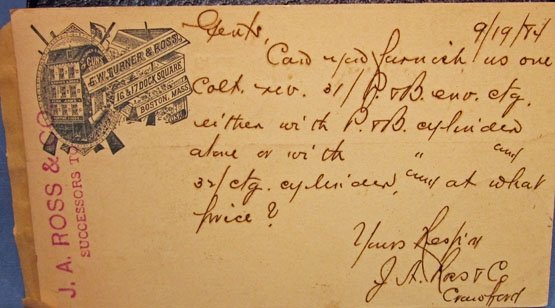 J. A. ROSS & CO.
SUCCESSORS TO
GUNS
G. W. TURNER & ROSS.
16 & 17 DOCK SQUARE
BOSTON, MASS
9/19/84
Gents,
Can you furnish us one
Colt. rev. 31/ P. & B. env. ctg.
either with P. & B. cylinder
alone or with " and
32/ ctg. cylinder, and at what
price?
Yours Respy
J. A. Ross & Co
Crawford